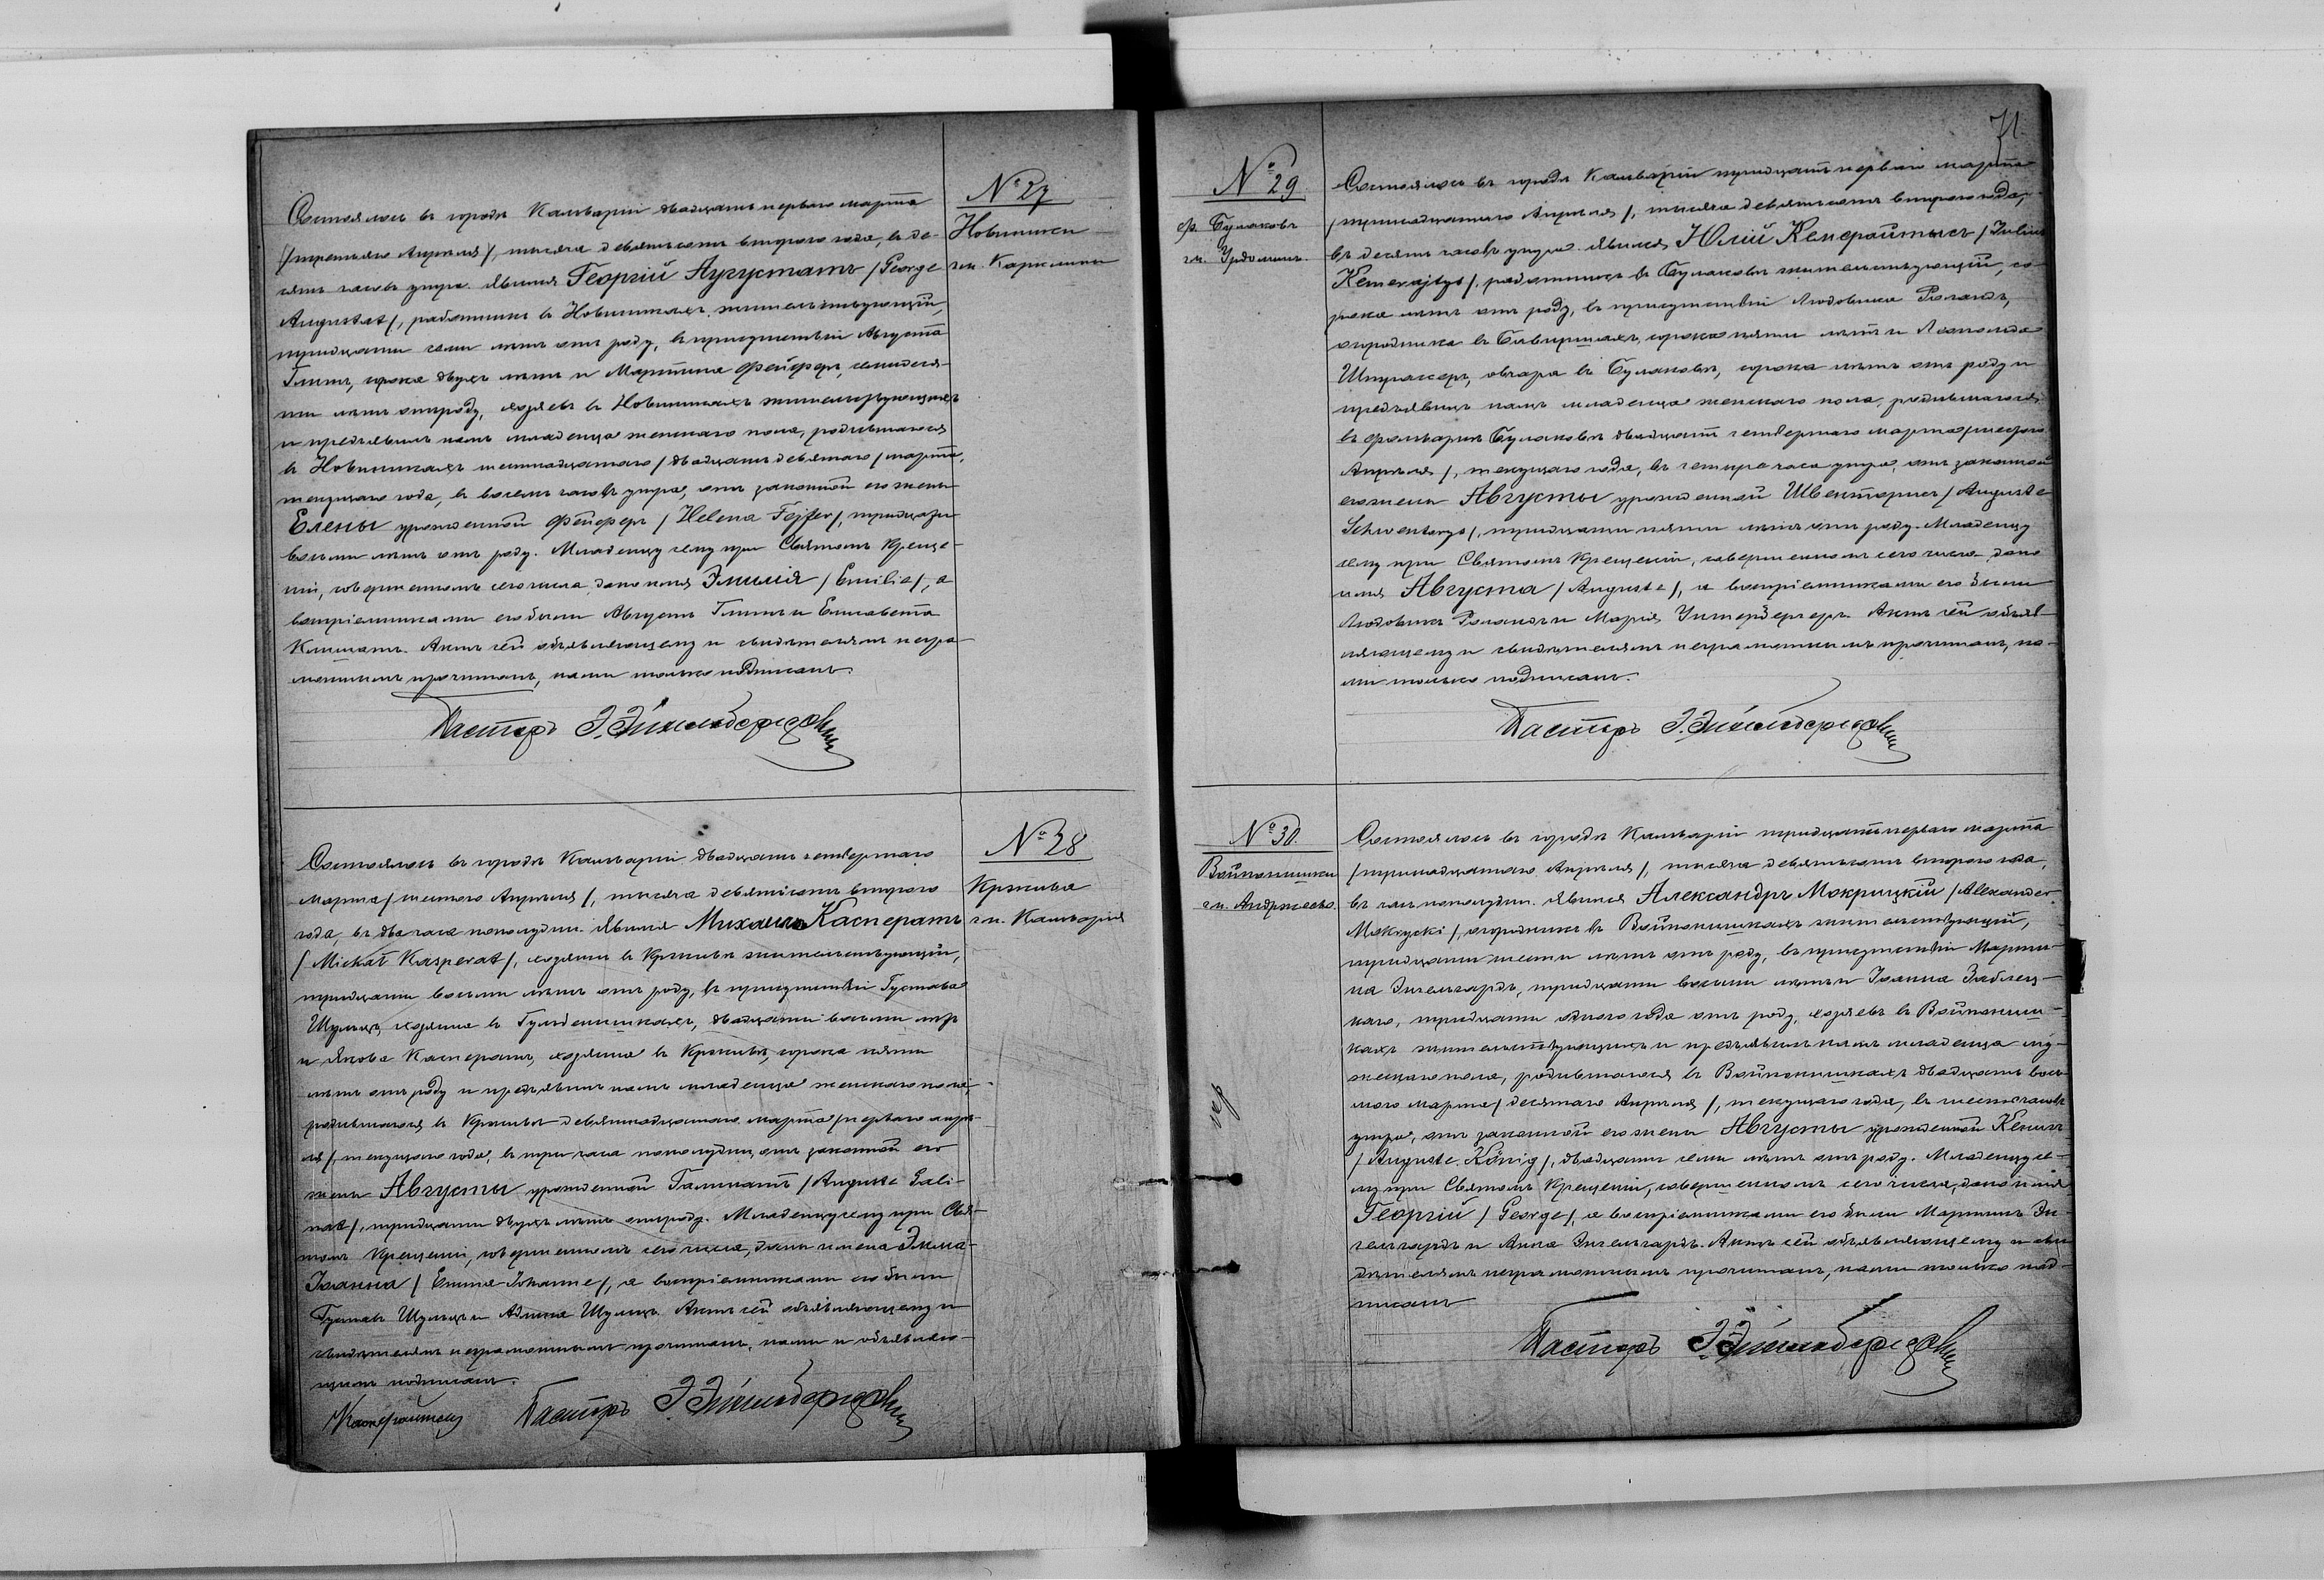 № 27
Новинники
гм. Карклины
Состоялось въ городѣ Кальваріи двадцать перваго марта
/третьяго Апрѣля/, тысяча девятьсотъ второго года, въ де-
сять часовъ утра. Явился Георгій Аугустатъ /George
Augustat/, работникъ въ Новинникахъ жительствующій,
тридцати семи лѣтъ отъ роду, въ присутствіи Августа
сорока двухъ лѣтъ и Мартина Фейферъ, семидеся-
ти лѣтъ отъ роду, хозяевъ въ Новинникахъ жительствующихъ
и предъявилъ намъ младенца женскаго пола, родившагося
въ Новинникахъ шестнадцатаго /двадцать девятаго/ марта,
текущаго года, въ восемь часовъ утра, отъ законной его жены
Елены урожденной Фейферъ /Helena Fejfer/, тридцати
восьми лѣтъ отъ роду. Младенцу сему при Святомъ Креще-
ніи, совершенномъ сего числа, дано имя Эмилія /Emilie/, а
воспріемниками его были Августъ и Елисавета
Актъ сей объявляющему и свидѣтелямъ негра-
мотнымъ прочитанъ, нами только подписанъ.
Пасторъ Э.
№ 28
Кржива
гм. Кальварія
Состоялось въ городѣ Кальваріи двадцать четвертаго
марта /шестого Апрѣля/, тысяча девятьсотъ второго
года, въ два часа пополудни. Явился Михаилъ Касператъ
/Michał Kasperat/, хозяинъ въ Крживѣ жительствующій,
тридцати восьми лѣтъ отъ роду, въ присутствіи Густава
Шульцъ, хозяина въ двадцати восьми лѣтъ
и Якова Касператъ, хозяина въ Крживѣ, сорока пяти
лѣтъ отъ роду и предъявилъ намъ младенца женскаго пола,
родившагося въ Крживѣ девятнадцатаго марта /перваго апрѣ-
ля/, текущаго года, въ три часа пополудни, отъ законной его
жены Августы урожденной Галинатъ /Auguste Gali-
nat/, тридцати двухъ лѣтъ отъ роду. Младенцу сему при Свя-
томъ Крещеніи, совершенномъ сего числа, даны имена Эмма-
Іоанна /Emma-Johanne/, а воспріемниками его были
Густавъ Шульцъ и Шульцъ. Актъ сей объявляющему и
свидѣтелямъ неграмотнымъ прочитанъ, нами и объявляю-
щимъ подписанъ.
Пасторъ Э.
71.
№ 29.
ф. Булаковъ
гм. Урдоминъ.
Состоялось въ городѣ Кальваріи тридцать перваго марта
/тринадцатаго Апрѣля/, тысяча девятьсотъ второго года,
въ десять часовъ утра. Явился Юлій Кемерайтысъ /Julius
Kemerajtys/, работникъ въ Булаковѣ жительствующій, со-
рока лѣтъ отъ роду, въ присутствіи Людовика Роландъ,
огородника въ сорока пяти лѣтъ и Леопольда
овчара въ Булаковѣ, сорока лѣтъ отъ роду и
предъявилъ намъ младенца женскаго пола, родившагося
въ фольваркѣ Булаковѣ двадцать четвертаго марта /шестого
Апрѣля/, текущаго года, въ четыре часа утра, отъ законной
его жены Августы урожденной Швенторисъ /Auguste
Schwentorys/, тридцати пяти лѣтъ отъ роду. Младенцу
сему при Святомъ Крещеніи, совершенномъ сего числа, дано
имя Августа /Auguste/, а воспріемниками его были
Людовикъ Роландъ и Марія Унтербергеръ. Актъ сей объяв-
ляющему и свидѣтелямъ неграмотнымъ прочитанъ, на-
ми только подписанъ.
Пасторъ Э.
№ 30.
Войпонишки
гм. Андржеево.
Состоялось въ городѣ Кальваріи тридцать перваго марта
/тринадцатаго Апрѣля/, тысяча девятьсотъ второго года,
въ часъ пополудни. Явился Александръ Мокрицкій /Alexander
Mokrycki/, огородникъ въ Войпонишкахъ жительствующій,
тридцати шести лѣтъ отъ роду, въ присутствіи Марти-
на Энгельгардъ, тридцати восьми лѣтъ и Іоанна Заблоц-
каго, тридцати одного года отъ роду, хозяевъ въ Войпониш-
кахъ жительствующихъ и предъявилъ намъ младенца му-
жескаго пола, родившагося въ Войпонишкахъ двадцать вось-
мого марта /десятаго Апрѣля/, текущаго года, въ шесть часовъ
утра, отъ законной его жены Августы урожденной Кенигъ
/Auguste König/, двадцати семи лѣтъ отъ роду. Младенцу се-
му при Святомъ Крещеніи, совершенномъ сего числа, дано имя
Георгій /George/, а воспріемниками его были Мартинъ Эн-
гельгардъ и Анна Энгельгардъ. Актъ сей объявляющему и сви-
дѣтелямъ неграмотнымъ прочитанъ, нами только под-
писанъ
Пасторъ Э.